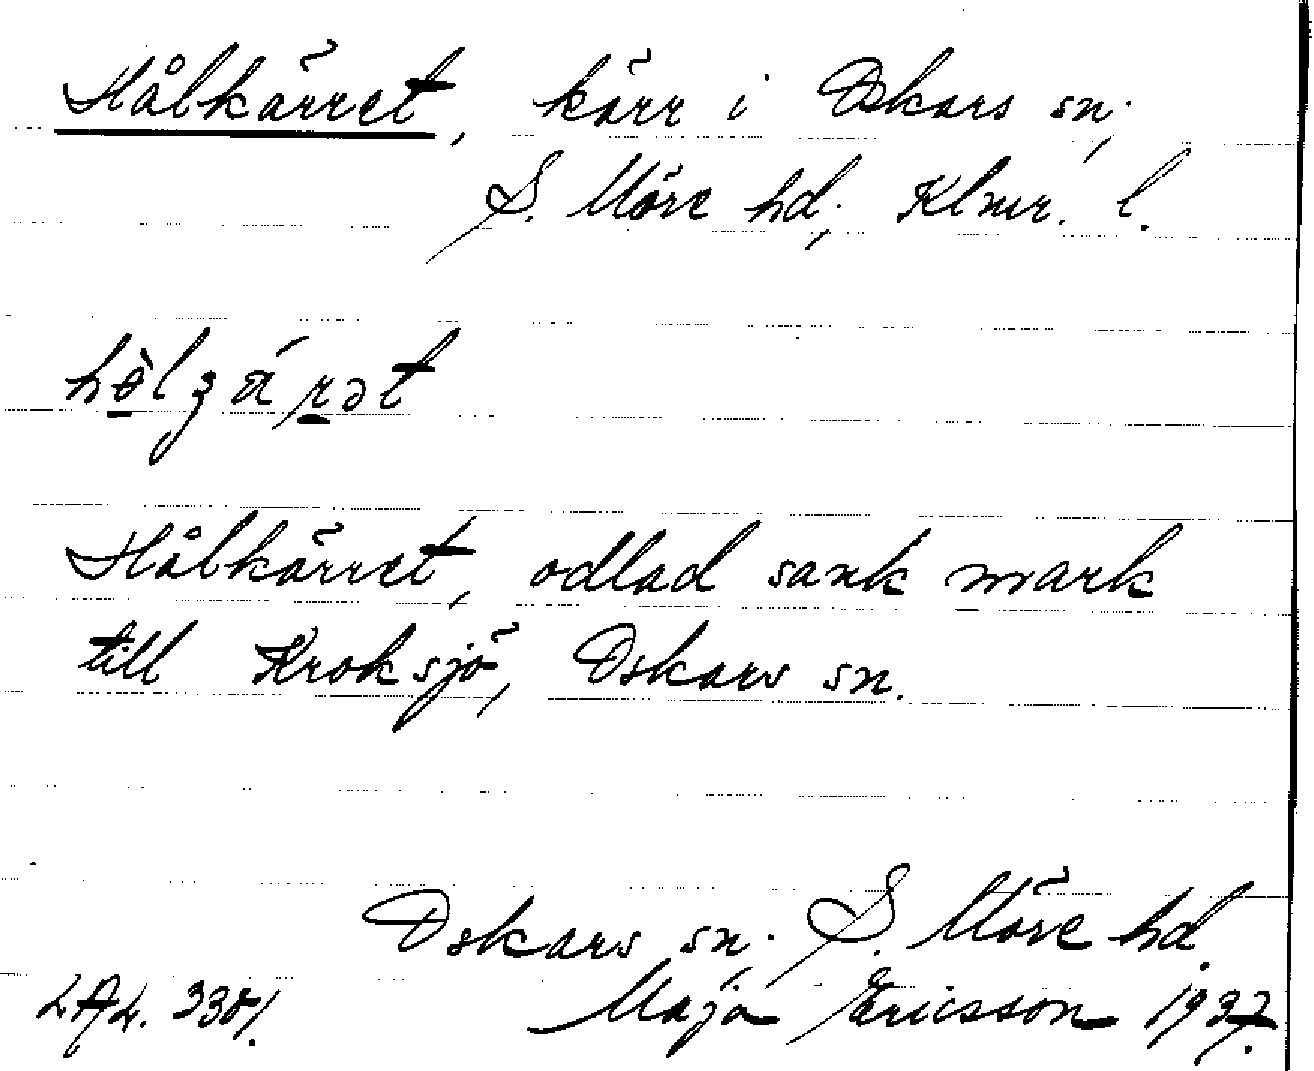 Hålkärret, kärr i Oskars sn;
S. Möre hd; Klmr. l.
Hålkärret, odlad sank mark
till Kroksjö, Oskars sn.
Oskars sn. S. Möre hd.
Maja Ericsson 1937.